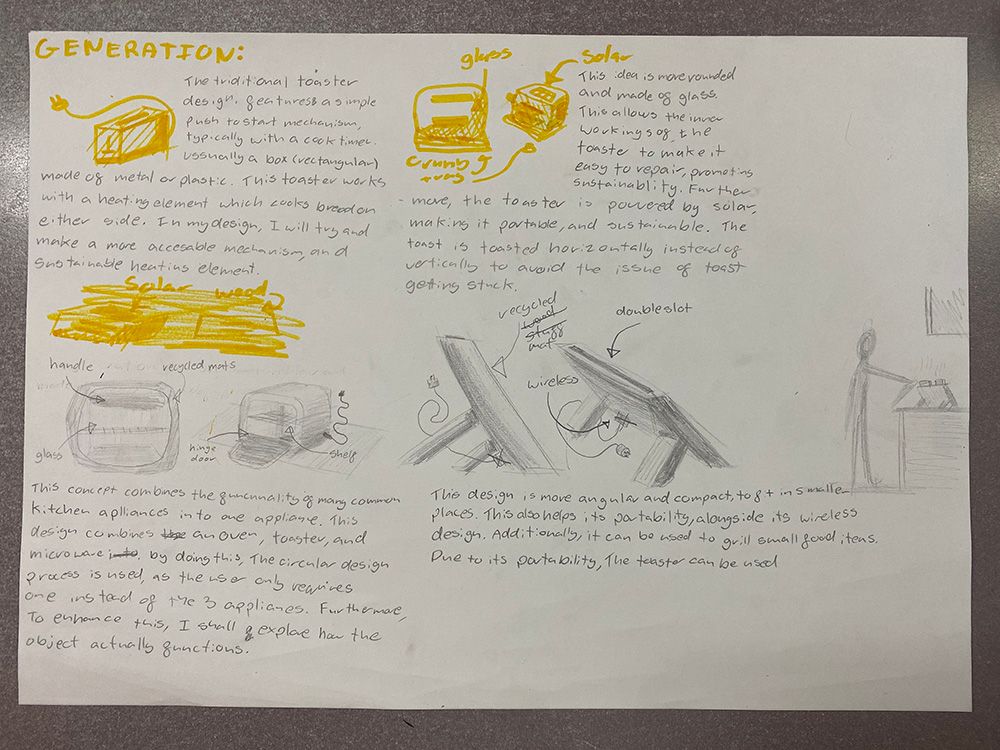 GENERATION:
The triditional toaster
design. features a simple
push to start mechanism,
typically with a cook timer.
ussually a box (rectangular)
made of metal or plastic. This toaster works
with a heating element which cooks bread on
either side. In my design, I will try and
make a more accesable mechanism, and
sustainable heating element.
glass
solar
crumb
tray
This idea is more rounded
and made of glass.
This allows the inner
workings of the
toaster to make it
easy to repair, promoting
sustainablity. Further
- more, the toaster is powered by solar,
making it portable, and sustainable. The
toast is toasted horizontally instead of
vertically to avoid the issue of toast
getting stuck.
Solar wood
handle
recycled mats
glass
hinge
door
shelf
This concept combines the funcnality of many common
kitchen aplliances in to one appliane. This
design combines an oven, toaster, and
microwave by doing this, The circular design
process is used, as the user only requires
one instead of the 3 applianes. Furthermore,
To enhance this, I shall explore how the
object actually functions.
recycled
wood
stuff
mat
double slot
wireless
This design is more angular and compact, to fit in smaller
places. This also helps its portability, alongside its wireless
design. Additionally, it can be used to grill small food itens.
Due to its portability, The toaster can be used